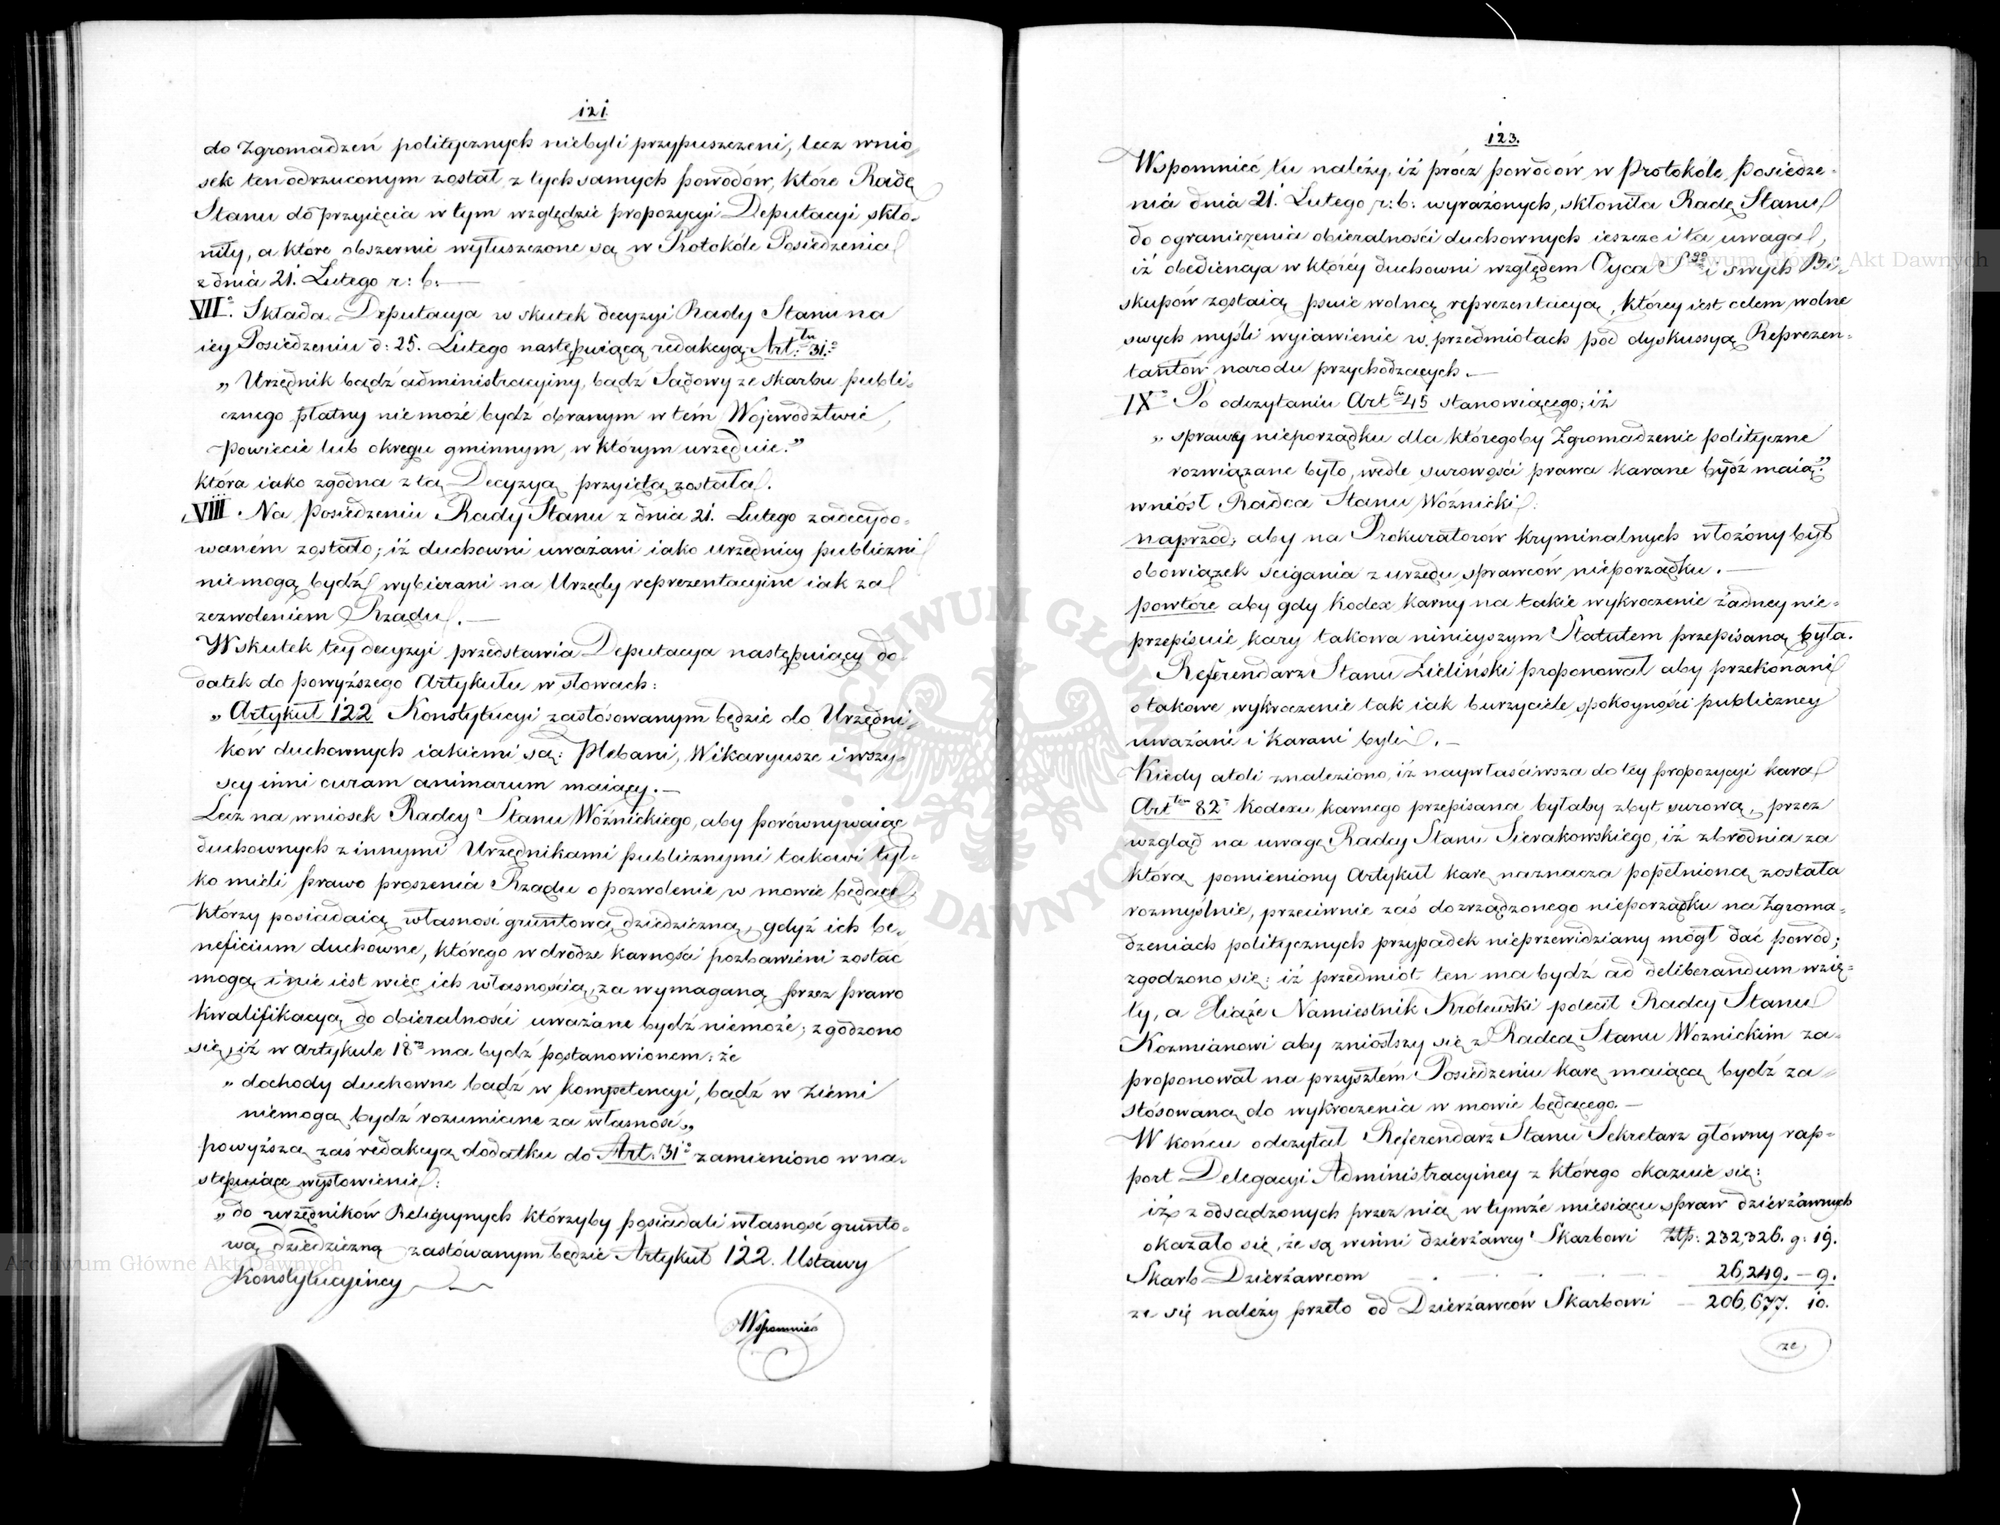 121.
do Zgromadzeń politycznych niebyli przypuszczeni, lecz wnio-
sek ten odrzuconym został z tych samych powodów, które Radę
Stanu do przyięcia w tym względzie propozycyi Deputacyi skło-
niły, a które obszernie wyłuszczone są w Protokóle Posiedzenia
z dnia 21. Lutego r: b:
VII° Składa Deputacya w skutek decyzyi Rady Stanu na
iey Posiedzeniu d: 25. Lutego następuiącą redakcyą Art:tu 31.°
„Urzędnik bądź administracyiny, bądź Sądowy ze skarbu publi-
cznego płatny nie może bydź obranym w tém Województwie,
Powiecie lub okręgu gminnym, w którym urzęduie."
która iako zgodna z tą Decyzyą przyiętą została.
VIII. Na Posiedzeniu Rady Stanu z dnia 21. Lutego zadecydo-
waném zostało; iż duchowni uważani iako urzędnicy publiczni
nie mogą bydź wybierani na Urzędy reprezentacyine iak za
zezwoleniem Rządu.—
W skutek tey decyzyi przedstawia Deputacya następuiący do-
datek do powyższego Artykułu w słowach:
„Artykuł 122 Konstytucyi zastósowanym będzie do Urzędni-
ków duchownych iakiemi są: Plebani, Wikaryusze i wszy-
scy inni curam animarum maiący.—
Lecz na wniosek Radcy Stanu Woźnickiego, aby porównywaiąc
duchownych z innymi Urzędnikami publicznymi takowi tyl-
ko mieli prawo proszenia Rządu o pozwolenie w mowie będące,
którzy posiadaią własność gruntową dziedziczną, gdyż ich be-
neficium duchowne, którego w drodze karności pozbawieni zostać
mogą i nie iest więc ich własnością, za wymaganą przez prawo
kwalifikacyą do obieralności uważane bydź niemoże; zgodzono
się, iż w artykule 18m ma bydź postanowionem: że
„dochody duchowne bądź w kompetencyi, bądź w Ziemi
niemogą bydź rozumiane za własność„
powyższą zaś redakcyą dodatku do Art. 31° zamieniono w na-
stępuiące wysłowienie:
„do urzędników Religiynych którzyby posiadali własność grunto-
wą dziedziczną zastówanym będzie Artykuł 122. Ustawy
Konstytucyiney
Wspomnieć
123.
Wspomnieć tu należy, iż prócz powodów w Protokóle Posiedze-
nia dnia 21. Lutego r: b: wyrażonych, skłoniła Radę Stanu
do ograniczenia obieralności duchownych ieszcze i ta uwaga,
iż obediencya w którey duchowni względem Oyca Sgo i swych Bi-
skupów zostaią psuie wolną reprezentacyą, którey iest celem wolne
swych myśli wyiawienie w przedmiotach pod dyskussyą Reprezen-
tantów narodu przychodzących.—
IX° Po odczytaniu Artłu 45 stanowiącego; iż
„sprawcy nieporządku dla któregoby Zgromadzenie polityczne
rozwiązane było, wedle surowości prawa karane bydź maią"
wniósł Radca Stanu Woźnicki:
naprzód; aby na Prokuratorów kryminalnych włożony był
obowiązek ścigania z urzędu sprawców nieporządku.—
powtóre aby gdy Kodex karny na takie wykroczenie żadney nie-
przepisuie kary takowa ninieyszym Statutem przepisaną była.
Referendarz Stanu Zieliński proponował aby przekonani
o takowe wykroczenie tak iak burzyciele spokoyności publiczney
uważani i karani byli.—
Kiedy atoli znaleziono, iż naywłaściwsza do tey propozycyi kara
Artłem 82° Kodexu karnego przepisana byłaby zbyt surową, przez
wzgląd na uwagę Radcy Stanu Sierakowskiego, iż zbrodnia za
którą pomieniony Artykuł karę naznacza popełnioną została
rozmyślnie, przeciwnie zaś do zrządzonego nieporządku na Zgroma-
dzeniach politycznych przypadek nieprzewidziany mógł dać powód;
zgodzono się: iż przedmiot ten ma bydź ad deliberandum wzię-
ty, a Xiąże Namiestnik Królewski polecił Radcy Stanu
Kozmianowi aby zniosłszy się z Radcą Stanu Woznickim za-
proponował na przyszłem Posiedzeniu karę maiącą bydź za-
stósowaną do wykroczenia w mowie będącego.—
W końcu odczytał Referendarz Stanu Sekretarz główny rap-
port Delegacyi Administracyiney z którego okazuie się:
iż z odsądzonych przez nią w tymże miesiącu spraw dzierżawnych
okazało się, że są winni dzierżawcy Skarbowi złp: 232,326. g: 19.
Skarb Dzierżawcom 26,249. – 9.
że się należy przeto od Dzierżawców Skarbowi — 206,677. 10.
że
ARCHIWUM GŁÓWNE AKT DAWNYCH
Archiwum Główne Akt Dawnych
Archiwum Główne Akt Dawnych